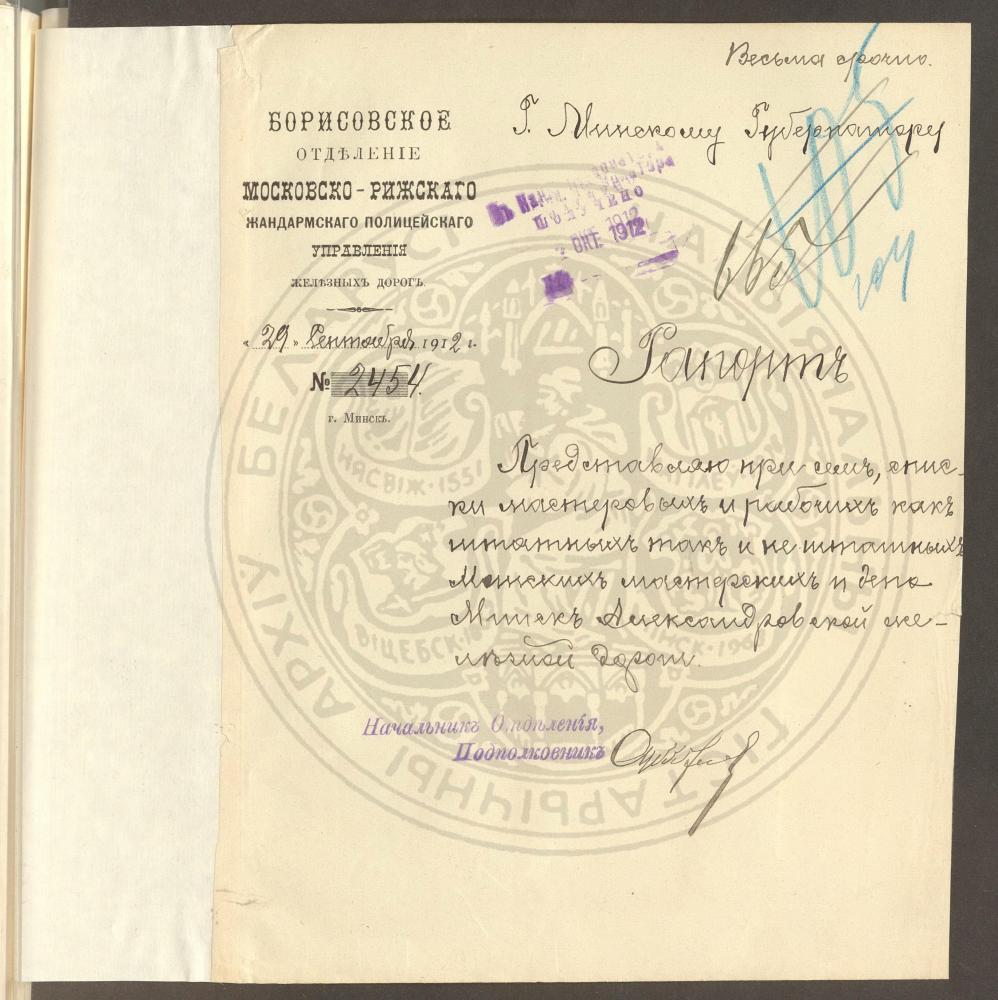 Весьма срочно.
Г. Минскому Губернатору
БОРИСОВСКОЕ
ОТДѢЛЕНІЕ
МОСКОВСКО-РИЖСКАГО
ЖАНДАРМСКАГО ПОЛИЦЕЙСКАГО
УПРАВЛЕНІЯ
ЖЕЛѢЗНЫХЪ ДОРОГЪ.
ПОЛУЧЕНО
2 ОКТ. 1912
« 29 » Сентября 1912 г.
№ 2454.
г. Минскъ.
Рапортъ
Представляю при семъ, спис-
ки мастеровыхъ и рабочихъ какъ
штатныхъ такъ и не штатныхъ
Минскихъ мастерскихъ и депо
Минскъ Александровской же-
лѣзной дороги.
Начальникъ Отдѣленія,
Подполковникъ
НЯСВІЖ·1551
ВІЦЕБСК